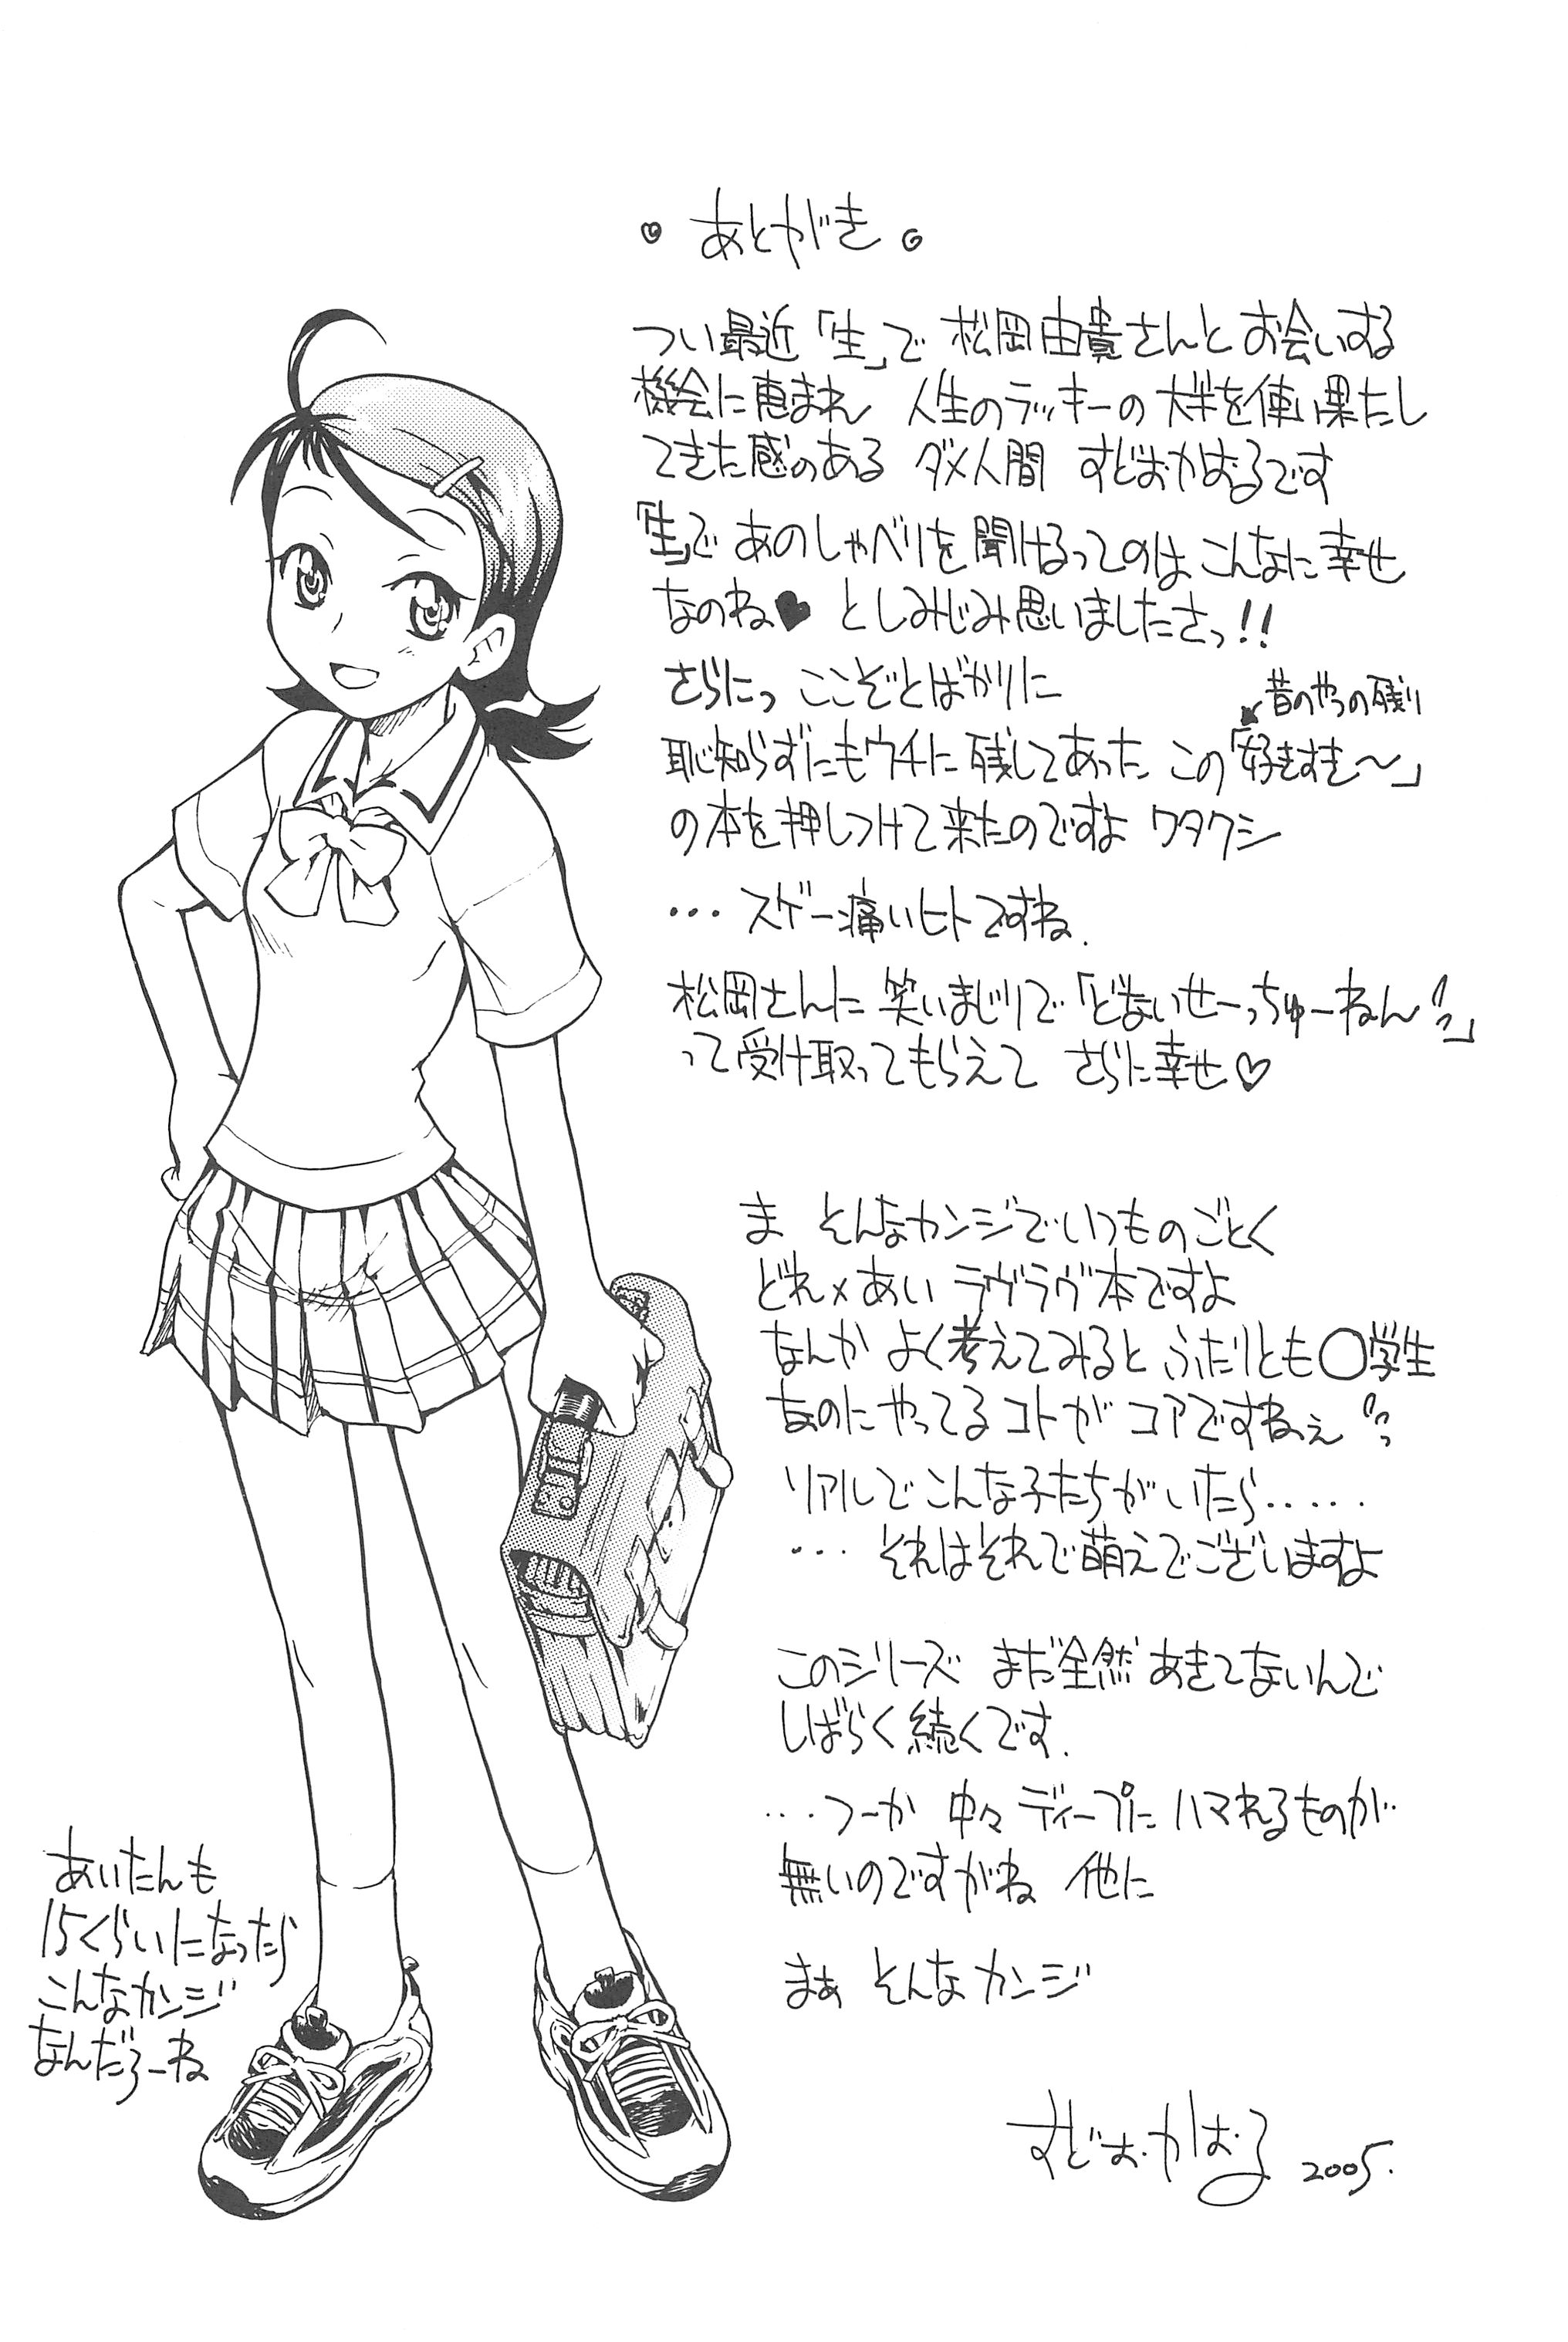 あとがき
つい最近「生」で 松岡由貴さんと お会いする
機会に恵まれ 人生のラッキーの 大半を使い果たし
てきた感のある ダメ人間 すどおかおるです
「生」で あのしゃべりを 聞けるってのは こんなに 幸せ
なのね♥ としみじみ思いましたさっ!!
さらにっ ここぞとばかりに
昔のやつの残り
恥知らずにもウチに 残してあった この「好きすき〜」
の本を 押しつけて 来たのですよ ワタクシ
・・・スゲー痛いヒトですね.
松岡さんに 笑いまじりで「どないせーっちゅーねん」
って受け取ってもらえて さらに幸せ♡
ま そんなカンジで いつものごとく
どれ×あい ラヴラヴ本ですよ
なんか よく考えてみると ふたりとも〇学生
なのに やってるコトが コアですねぇ
リアルで こんな子たちが いたら・・・・・
・・・ それはそれで 萌えでございますよ
このシリーズ まだ全然 あきてないんで
しばらく 続くです.
・・・つーか 中々 ディープに ハマれるものが
無いのですがね 他に
まぁ そんなカンジ
あいたんも
15くらいになったら
こんなカンジ
なんだろーね
すどおかおる 2005.